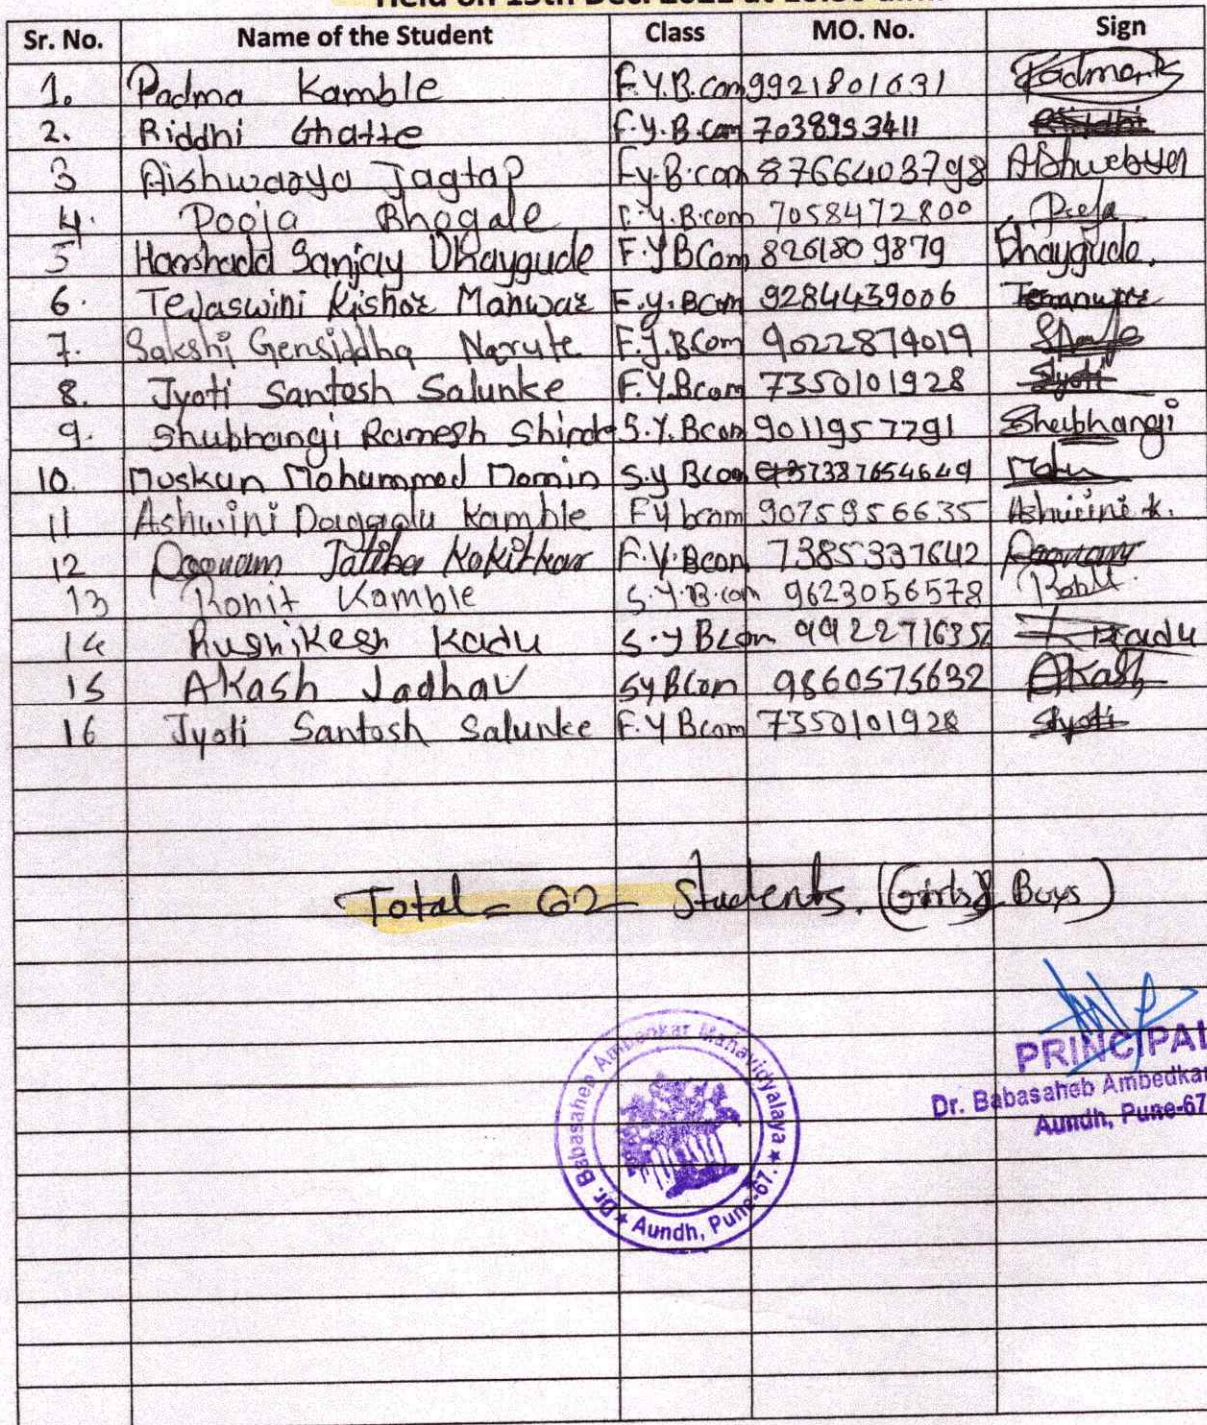 Sr. No. Name of the Student Class MO. No. Sign
1. Padma Kamble F.Y.B.Com 9921801631
2. Riddhi Ghatte F.Y.B.Com 7038993411
3 Aishwarya Jagtap F.Y.B.com 8766403798
4. Pooja Bhogale F.Y.B.com 7058472800 Pooja
5 Harshada Sanjay Dhaygude F.Y BCom 8261809879 Dhaygude.
6. Tejaswini Kishor Manwar F.Y.BCom 9284439006
7. Sakshi Gensiddha Narute F.Y.BCom 9022874019
8. Jyoti Santosh Salunke F.Y.Bcom 7350101928 Jyoti
9. Shubhangi Ramesh Shinde S.Y.Bcom 9011957791 Shubhangi
10. Muskun Mohammed Momin S.y Bcom 7387654649
11 Ashwini Daggalu Kamble FY bcom 9075956635 Ashwini k.
12 Poonam Jatiba Kokitkar F.Y.Bcom 7385337642 Poonam
13 Rohit Kamble S.Y.B.com 9623056578 Rohit
14 Rushikesh Kadu S.Y BCom 9922716352 Kadu
15 Akash Jadhav SyBCom 9860575632 Akash
16 Jyoti Santosh Salunke F.Y Bcom 7350101928 Jyoti
Total = 62 Students. (Girls & Boys)
Dr. Babasaheb Ambedkar Mahavidyalaya ★
★ Aundh, Pune-67.
PRINCIPAL
Dr. Babasaheb Ambedkar
Aundh, Pune-67